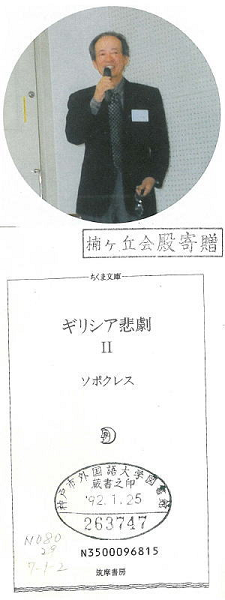 楠ヶ丘会殿寄贈
ちくま文庫
ギリシア悲劇
II
ソポクレス
神戸市外国語大学図書館
蔵書之印
'92.1.25
263747
M080
29
7-1-2
N3500096815
筑摩書房